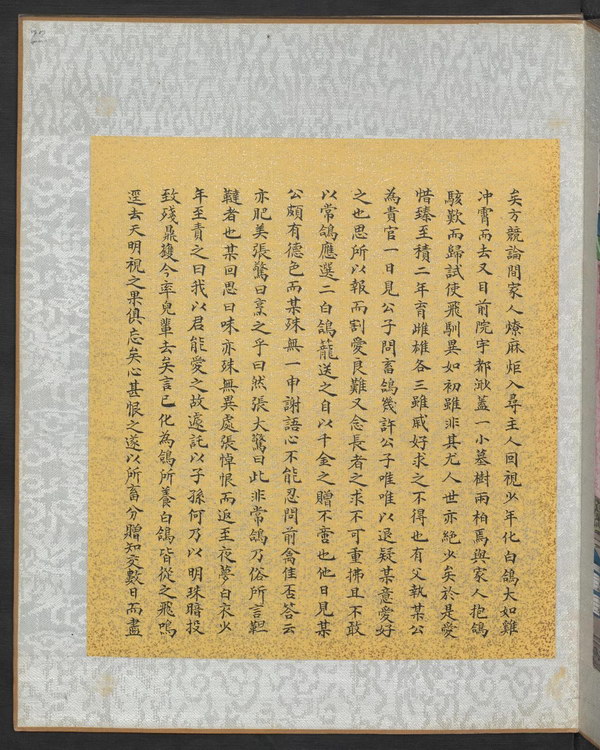 矣方競論間家人燎麻炬入尋主人回視少年化白鴿大如雞
冲霄而去又目前院宇都渺蓋一小墓樹兩柏焉與家人抱鴿
駭歎而歸試使飛馴異如初雖非其尤人世亦絕少矣於是愛
惜臻至積二年育雌雄各三雖戚好求之不得也有父執某公
為貴官一日見公子問畜鴿幾許公子唯唯以退疑某意愛好
之也思所以報而割愛良難又念長者之求不可重拂且不敢
以常鴿應選二白鴿籠送之自以千金之贈不啻也他日見某
公頗有德色而某殊無一申謝語心不能忍問前禽佳否答云
亦肥美張驚曰烹之乎曰然張大驚曰此非常鴿乃俗所言靼
韃者也某回思曰味亦殊無異處張悼恨而返至夜夢白衣少
年至責之曰我以君能愛之故遂託以子孫何乃以明珠暗投
致殘鼎鑊今率兒輩去矣言已化為鴿所養白鴿皆從之飛鳴
逕去天明視之果俱忘矣心甚恨之遂以所畜分贈知交數日而盡